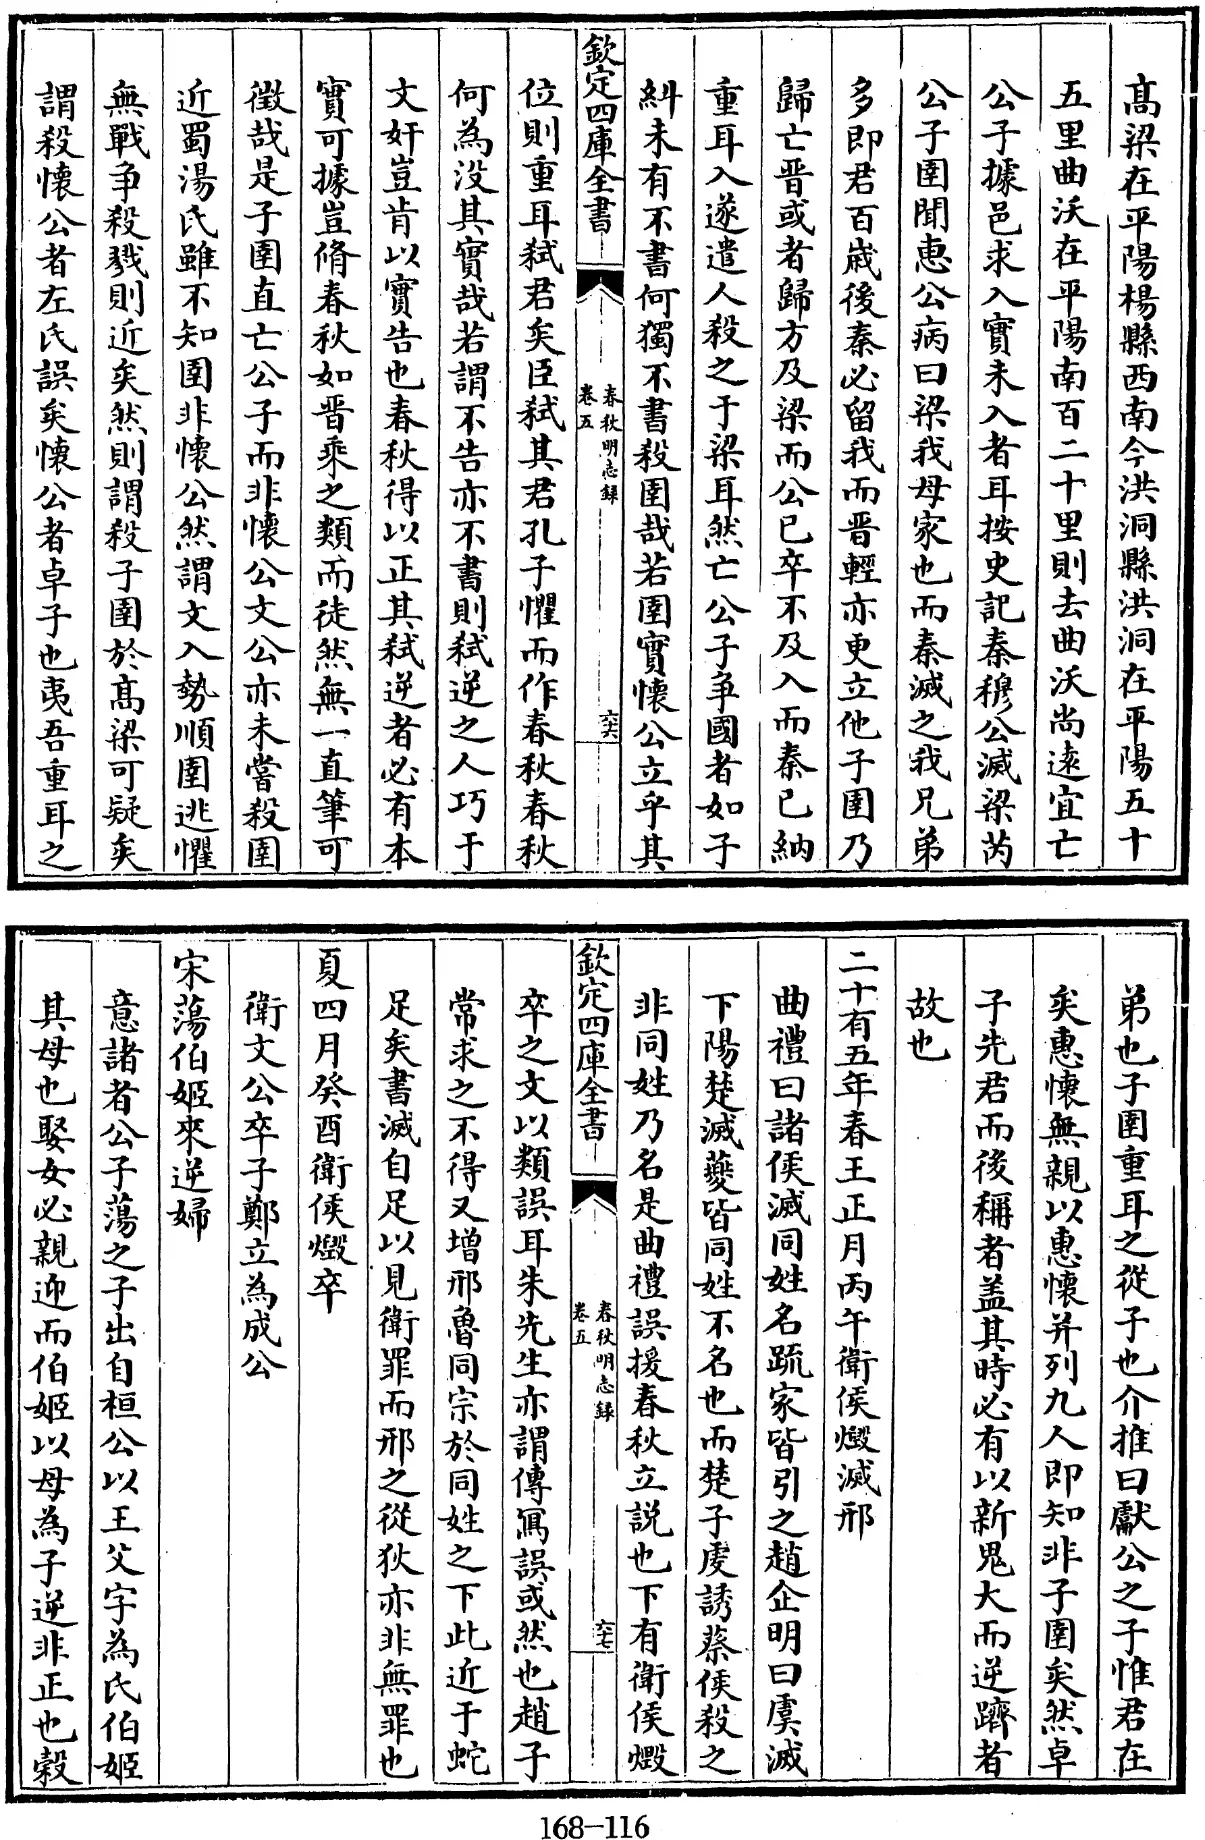 髙梁在平陽楊縣西南今洪洞縣洪洞在平陽五十
五里曲沃在平陽南百二十里則去曲沃尚逺宜亡
公子據邑求入實未入者耳按史記秦穆公滅梁芮
公子圉聞惠公病曰梁我母家也而秦滅之我兄弟
多即君百歳後秦必留我而晋輕亦更立他子圉乃
歸亡晋或者歸方及梁而公已卒不及入而秦已納
重耳入遂遣人殺之于梁耳然亡公子争國者如子
糾未有不書何獨不書殺圉哉若圉實懐公立乎其
欽定四庫全書
春秋明志録
卷五
六六
位則重耳弑君矣臣弑其君孔子懼而作春秋春秋
何為没其實哉若謂不告亦不書則弑逆之人巧于
文奸豈肯以實告也春秋得以正其弑逆者必有本
實可據豈脩春秋如晋乘之類而徒然無一直筆可
徵哉是子圉直亡公子而非懐公文公亦未嘗殺圉
近蜀湯氏雖不知圉非懐公然謂文入勢順圉逃懼
無戰争殺戮則近矣然則謂殺子圉於髙梁可疑矣
謂殺懐公者左氏誤矣懐公者卓子也夷吾重耳之
弟也子圉重耳之從子也介推曰獻公之子惟君在
矣惠懐無親以惠懐并列九人即知非子圉矣然卓
子先君而後稱者盖其時必有以新鬼大而逆躋者
故也
二十有五年春王正月丙午衛侯燬滅邢
曲禮曰諸侯滅同姓名䟽家皆引之趙企明曰虞滅
下陽楚滅䕫皆同姓不名也而楚子䖍誘蔡侯殺之
非同姓乃名是曲禮誤援春秋立説也下有衛侯燬
欽定四庫全書
春秋明志録
卷五
六七
卒之文以類誤耳朱先生亦謂傳寫誤或然也趙子
常求之不得又增邢魯同宗於同姓之下此近于蛇
足矣書滅自足以見衛罪而邢之從狄亦非無罪也
夏四月癸酉衛侯燬卒
衛文公卒子鄭立為成公
宋蕩伯姬來逆婦
意諸者公子蕩之子出自桓公以王父字為氏伯姬
其母也娶女必親迎而伯姬以母為子逆非正也榖
168-116